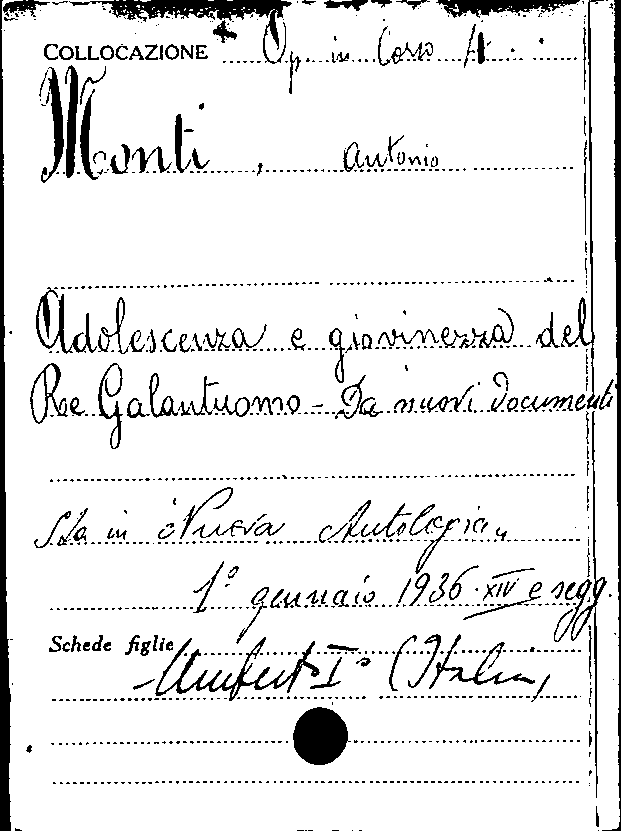 COLLOCAZIONE Op. in Corso A.
Monti, Antonio
Adolescenza e giovinezza del
Re Galantuomo - Da nuovi documenti
Sta in "Nuova Antologia"
1° gennaio 1936 - XIV e segg.
Schede figlie
Umberto I° (Italia)